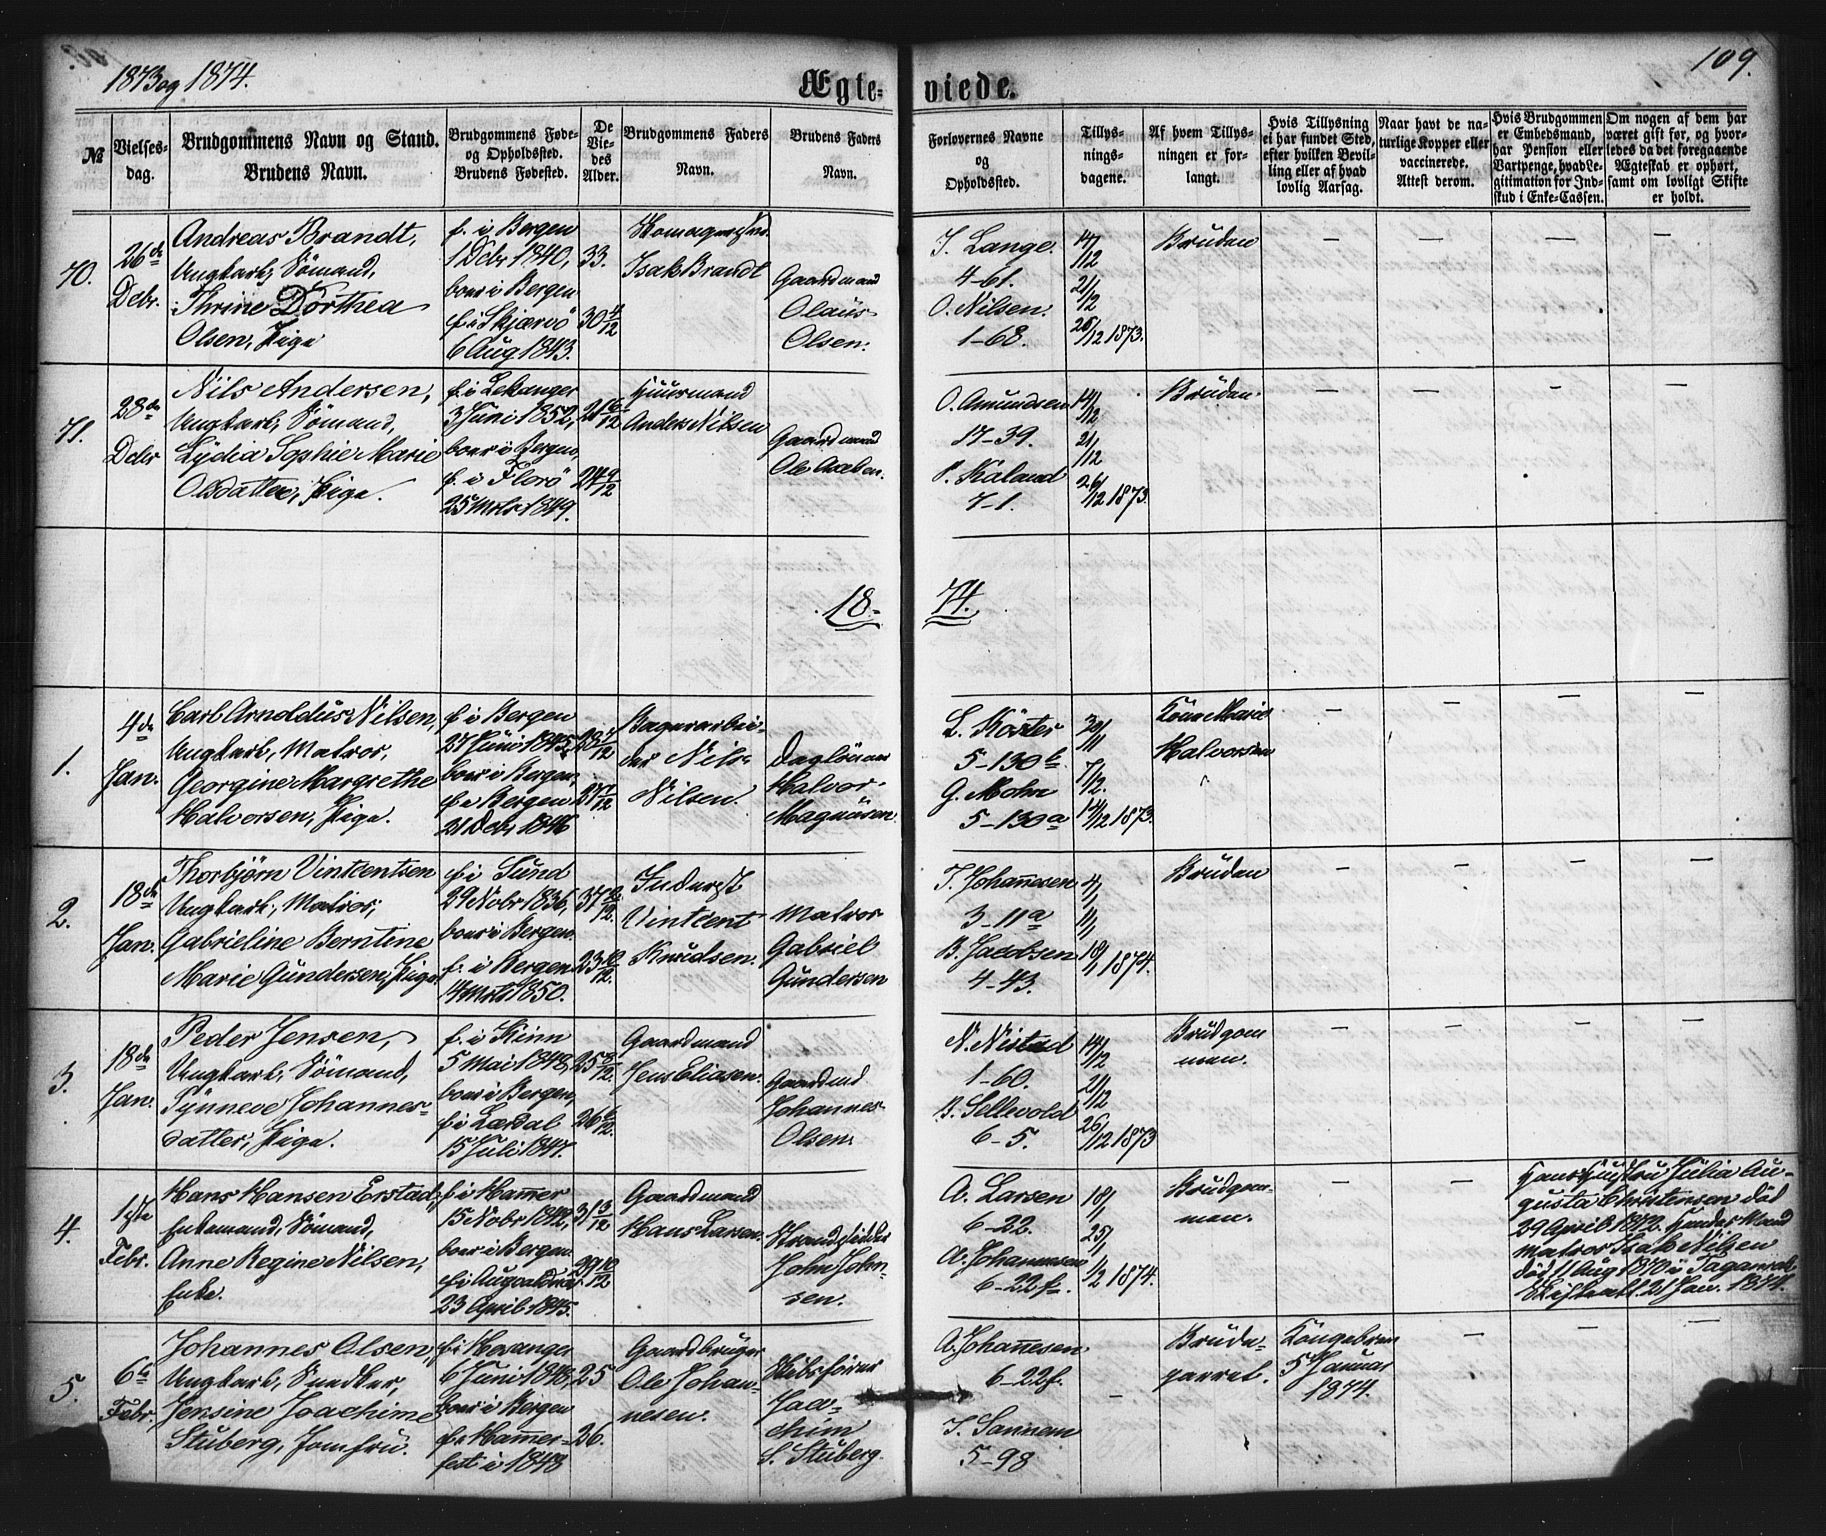 1873 og 1874.
109.
Ægte-
viede.
№
Vielses-
dag.
Brudgommens Navn og Stand.
Brudens Navn.
Brudgommens Føde-
og Opholdssted.
Brudens Fødested.
De
Vie-
des
Alder.
Brudgommens Faders
Navn.
Brudens Faders
Navn.
Forlovernes Navne
og
Opholdssted.
Tillys-
nings-
dagene.
Af hvem Tillys-
ningen er for-
langt.
Hvis Tillysning
ei har fundet Sted,
efter hvilken Bevil-
ling eller af hvad
lovlig Aarsag.
Naar havt de na-
turlige Kopper eller
vaccinerede.
Attest derom.
Hvis Brudgommen
er Embedsmand,
har Pension eller
Vartpenge, hvad Le-
gitimation for Ind-
skud i Enke-Cassen.
Om nogen af dem har
været gift før, og hvor-
ledes da det foregaaende
Ægteskab er ophørt,
samt om lovligt Skifte
er holdt.
70.
26de
Debr.
Andreas Brandt,
Ungkarl, Sömand,
Thrine Dorthea
Olsen, Pige
f. i Bergen
1 Debr 1840,
boer i Bergen
f. i Skjærvö
6 Aug 1843.
33.
30 4/12
Isak Brandt
Gaardmand
Olaüs
Olsen.
J. Lange.
4-61.
O. Nilsen.
1-68.
14/12
21/12
26/12 1873.
Brüden
— — — —
71.
28de
Debr
Nils Andersen,
Ungkarl, Sömand,
Lÿdia Sophie Marie
Olsdatter, Pige.
f. i Lekanger
3 Juni 1852,
boer i Bergen,
f. i Florö
25 Marts 1849.
21 6/12
24 9/12
Huusmand
Anders Nilsen
Gaardmand
Ole
O. Amundsen
17-39.
P. Kaland
7-1.
14/12
21/12
26/12 1873.
Brüden
— — — —
18-
74.
1.
4de
Jan.
Carl Arnoldüs Nilsen,
Ungkarl, Matros,
Georgine Margrethe
Halvorsen, Pige.
f. i Bergen
27 Jüni 1845,
boer i Bergen,
f. i Bergen
21 Debr 1846
Bagerarbei-
der Nils
Nilsen.
Daglönner
Halvor
Magnüsen
L. Köster
5-130b.
G. Mohn
5-130a
30/11
7/12.
14/12 1873.
Marie
Halvorsen
— — — —
2.
18de
Jan.
Thorbjörn Vintcentsen
Ungkarl, Matros,
Gabrieline Berntine
Marie Gündersen, Pige.
f. i Sund
29 Nobr 1836,
boer i Bergen.
f. i Bergen
14 Marts 1850.
37 2/12.
23 10/12.
Vintcent
Knüdsen.
Matros
Gabriel
Gündersen
T. Johannesen
3-11a
B. Jacobsen
4-43.
4/1
11/1
18/1 1874.
Brüden
— — — —
3.
18de
Jan.
Peder Jensen,
Ungkarl, Sömand,
Sÿnneve Johannes-
datter, Pige.
f. i Kinn
5 Mai 1848,
boer i Bergen,
f. i Lærdal
15 Juli 1847.
25 8/12.
26 6/12.
Gaardmand
Jens Eliasen.
Gaardmd
Johannes
Olsen.
N. Nistad
1-60.
B. Sellevold
6-5.
14/12
21/12
26/12 1873
Brudgom
men.
— — — —
4.
1ste
Febr.
Hans Hansen Erstad,
Enkemand, Sömand,
Anne Regine Nilsen,
Enke.
f. i Hammer
15 Nobr 1842,
boer i Bergen
f. i Augvaldsnæs
23 April 1845.
31 3/12
Gaardmand
Hans Larsen.
Strandsidder
John John-
sen.
A. Larsen
6-22.
A. Johannesen
6-22f.
18/1
25/1
1/2 1874.
Brudgom-
men.
— — —
Hans Hustru Jülia Au-
gusta Christensen död
29 April 1872. Hendes Mand
matros Isak Nilsen
död 11 Aug 1870 i Taganrok
Skifteatt. 21 Jan. 1874.
5.
6te
Febr.
Johannes Olsen,
Ungkarl, Snedker,
Jensine Joachime
Stüberg, Jomfrü.
f. i Hosanger
6 Juni 1848,
boer i Bergen
f. i Hammer-
fest i 1848
25
26.
Gaardbrüger
Ole Johan-
nesen.
Skibsförer
Joa-
chim
S. Stüberg.
A. Johannesen
6-22f.
J. Sannem
5-98
—
Brüde-
parret.
Kongebrev
5 Januar
1874.
— — —